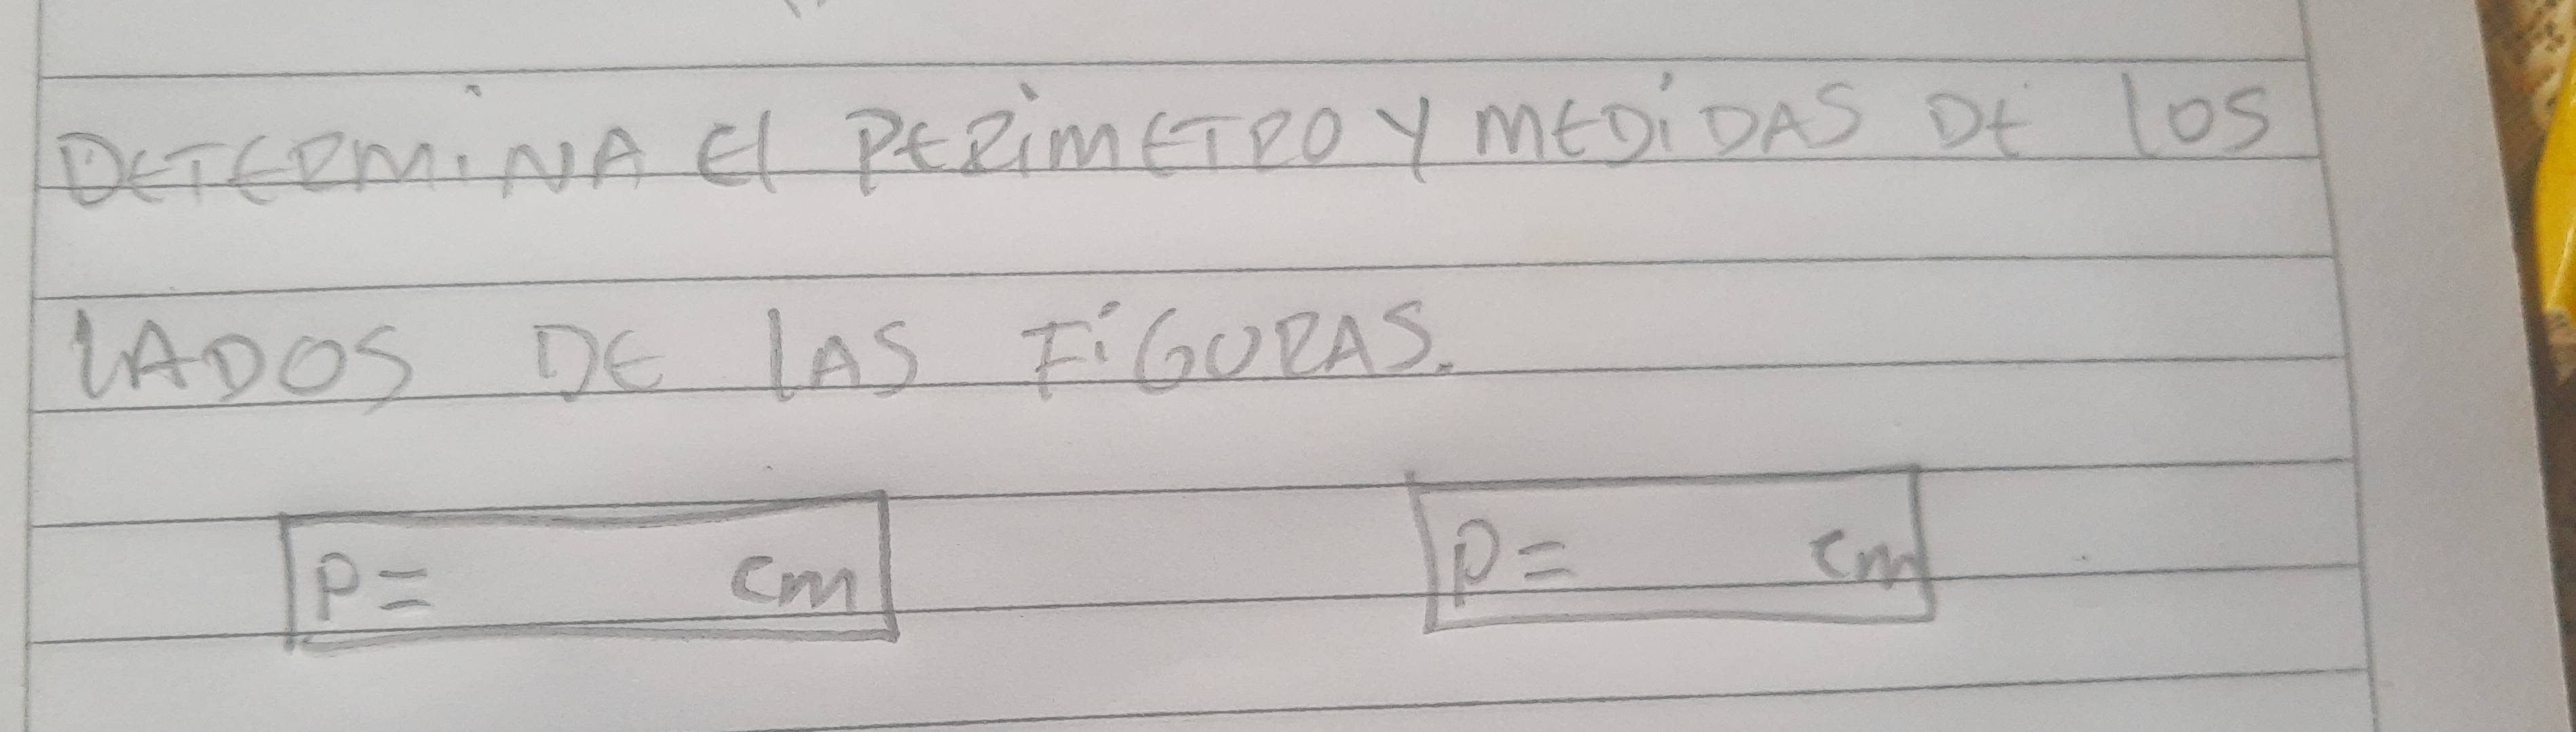 DETERMINA El PERIMETRO Y MEDIDAS DE lOS
lADOS DE lAS FiGURAS.
P= cm P= cm